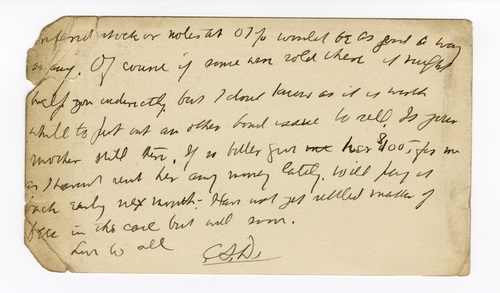 preferred stock or notes at 07% would be as good a way
as any. Of course if some were sold there it might
help you indirectly but I dont know as it is worth
while to put out an other bond issue to sell. Is your
mother still there. If so better give me her $100, for me
as I havent sent her any money lately. Will pay it
back early next month – Have not yet settled matter of
fees in the case but will soon.
Love to all
C.S.D.